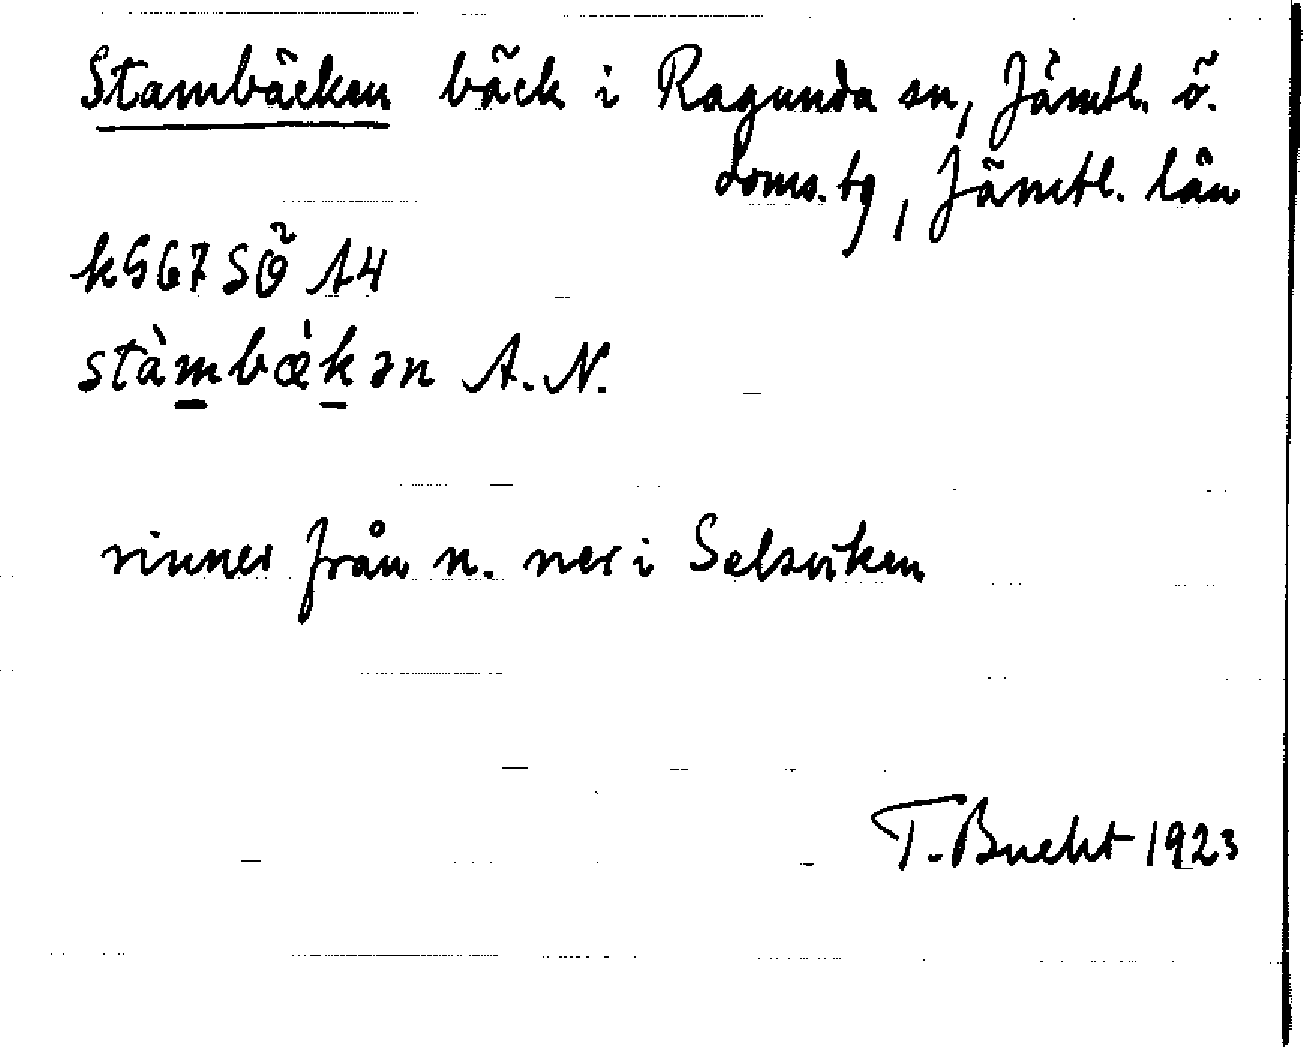 Stambäcken bäck i Ragunda sn, Jämtl. ö.
doms. tg, Jämtl. län
k567SÖ A4
stàmbæ̀kən A. N.
rinner från n. ner i Selsviken
T. Bucht 1923